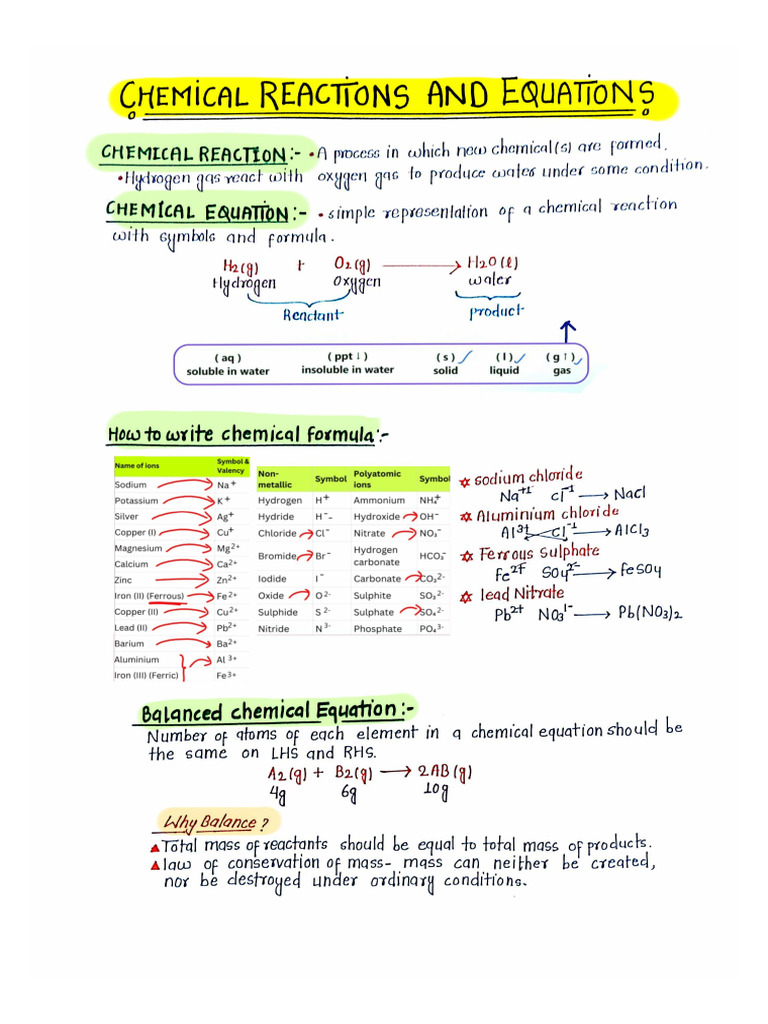 CHEMICAL REACTIONS AND EQUATIONS
CHEMICAL REACTION:- • A process in which new chemical(s) are formed.
• Hydrogen gas react with oxygen gas to produce water under some condition.
CHEMICAL EQUATION:- • simple representation of a chemical reaction
with symbols and formula.
H2(g) + O2(g) → H2O(l)
Hydrogen Oxygen water
Reactant product
(aq) (ppt↓) (s) (l) (g↑)
soluble in water insoluble in water solid liquid gas
How to write chemical formula:-
Name of ions Symbol & Valency
Sodium Na+
Potassium K+
Silver Ag+
Copper (I) Cu+
Magnesium Mg2+
Calcium Ca2+
Zinc Zn2+
Iron (II) (Ferrous) Fe2+
Copper (II) Cu2+
Lead (II) Pb2+
Barium Ba2+
Aluminium Al 3+
Iron (III) (Ferric) Fe3+
Non-metallic Symbol Polyatomic ions Symbol
Hydrogen H+ Ammonium NH4+
Hydride H- Hydroxide OH-
Chloride Cl- Nitrate NO3-
Bromide Br- Hydrogen carbonate HCO3-
Iodide I- Carbonate CO32-
Oxide O2- Sulphite SO32-
Sulphide S 2- Sulphate SO42-
Nitride N3- Phosphate PO43-
sodium chloride
Na+1 cl-1 → Nacl
Aluminium chloride
Al3+ Cl-1 → AlCl3
Ferrous Sulphate
Fe2+ SO42- → FeSO4
lead Nitrate
Pb2+ NO31- → Pb(NO3)2
Balanced chemical Equation:-
Number of atoms of each element in a chemical equation should be
the same on LHS and RHS.
A2(g) + B2(g) → 2AB(g)
4g 6g 10g
Why Balance?
Total mass of reactants should be equal to total mass of products.
law of conservation of mass- mass can neither be created,
nor be destroyed under ordinary conditions.